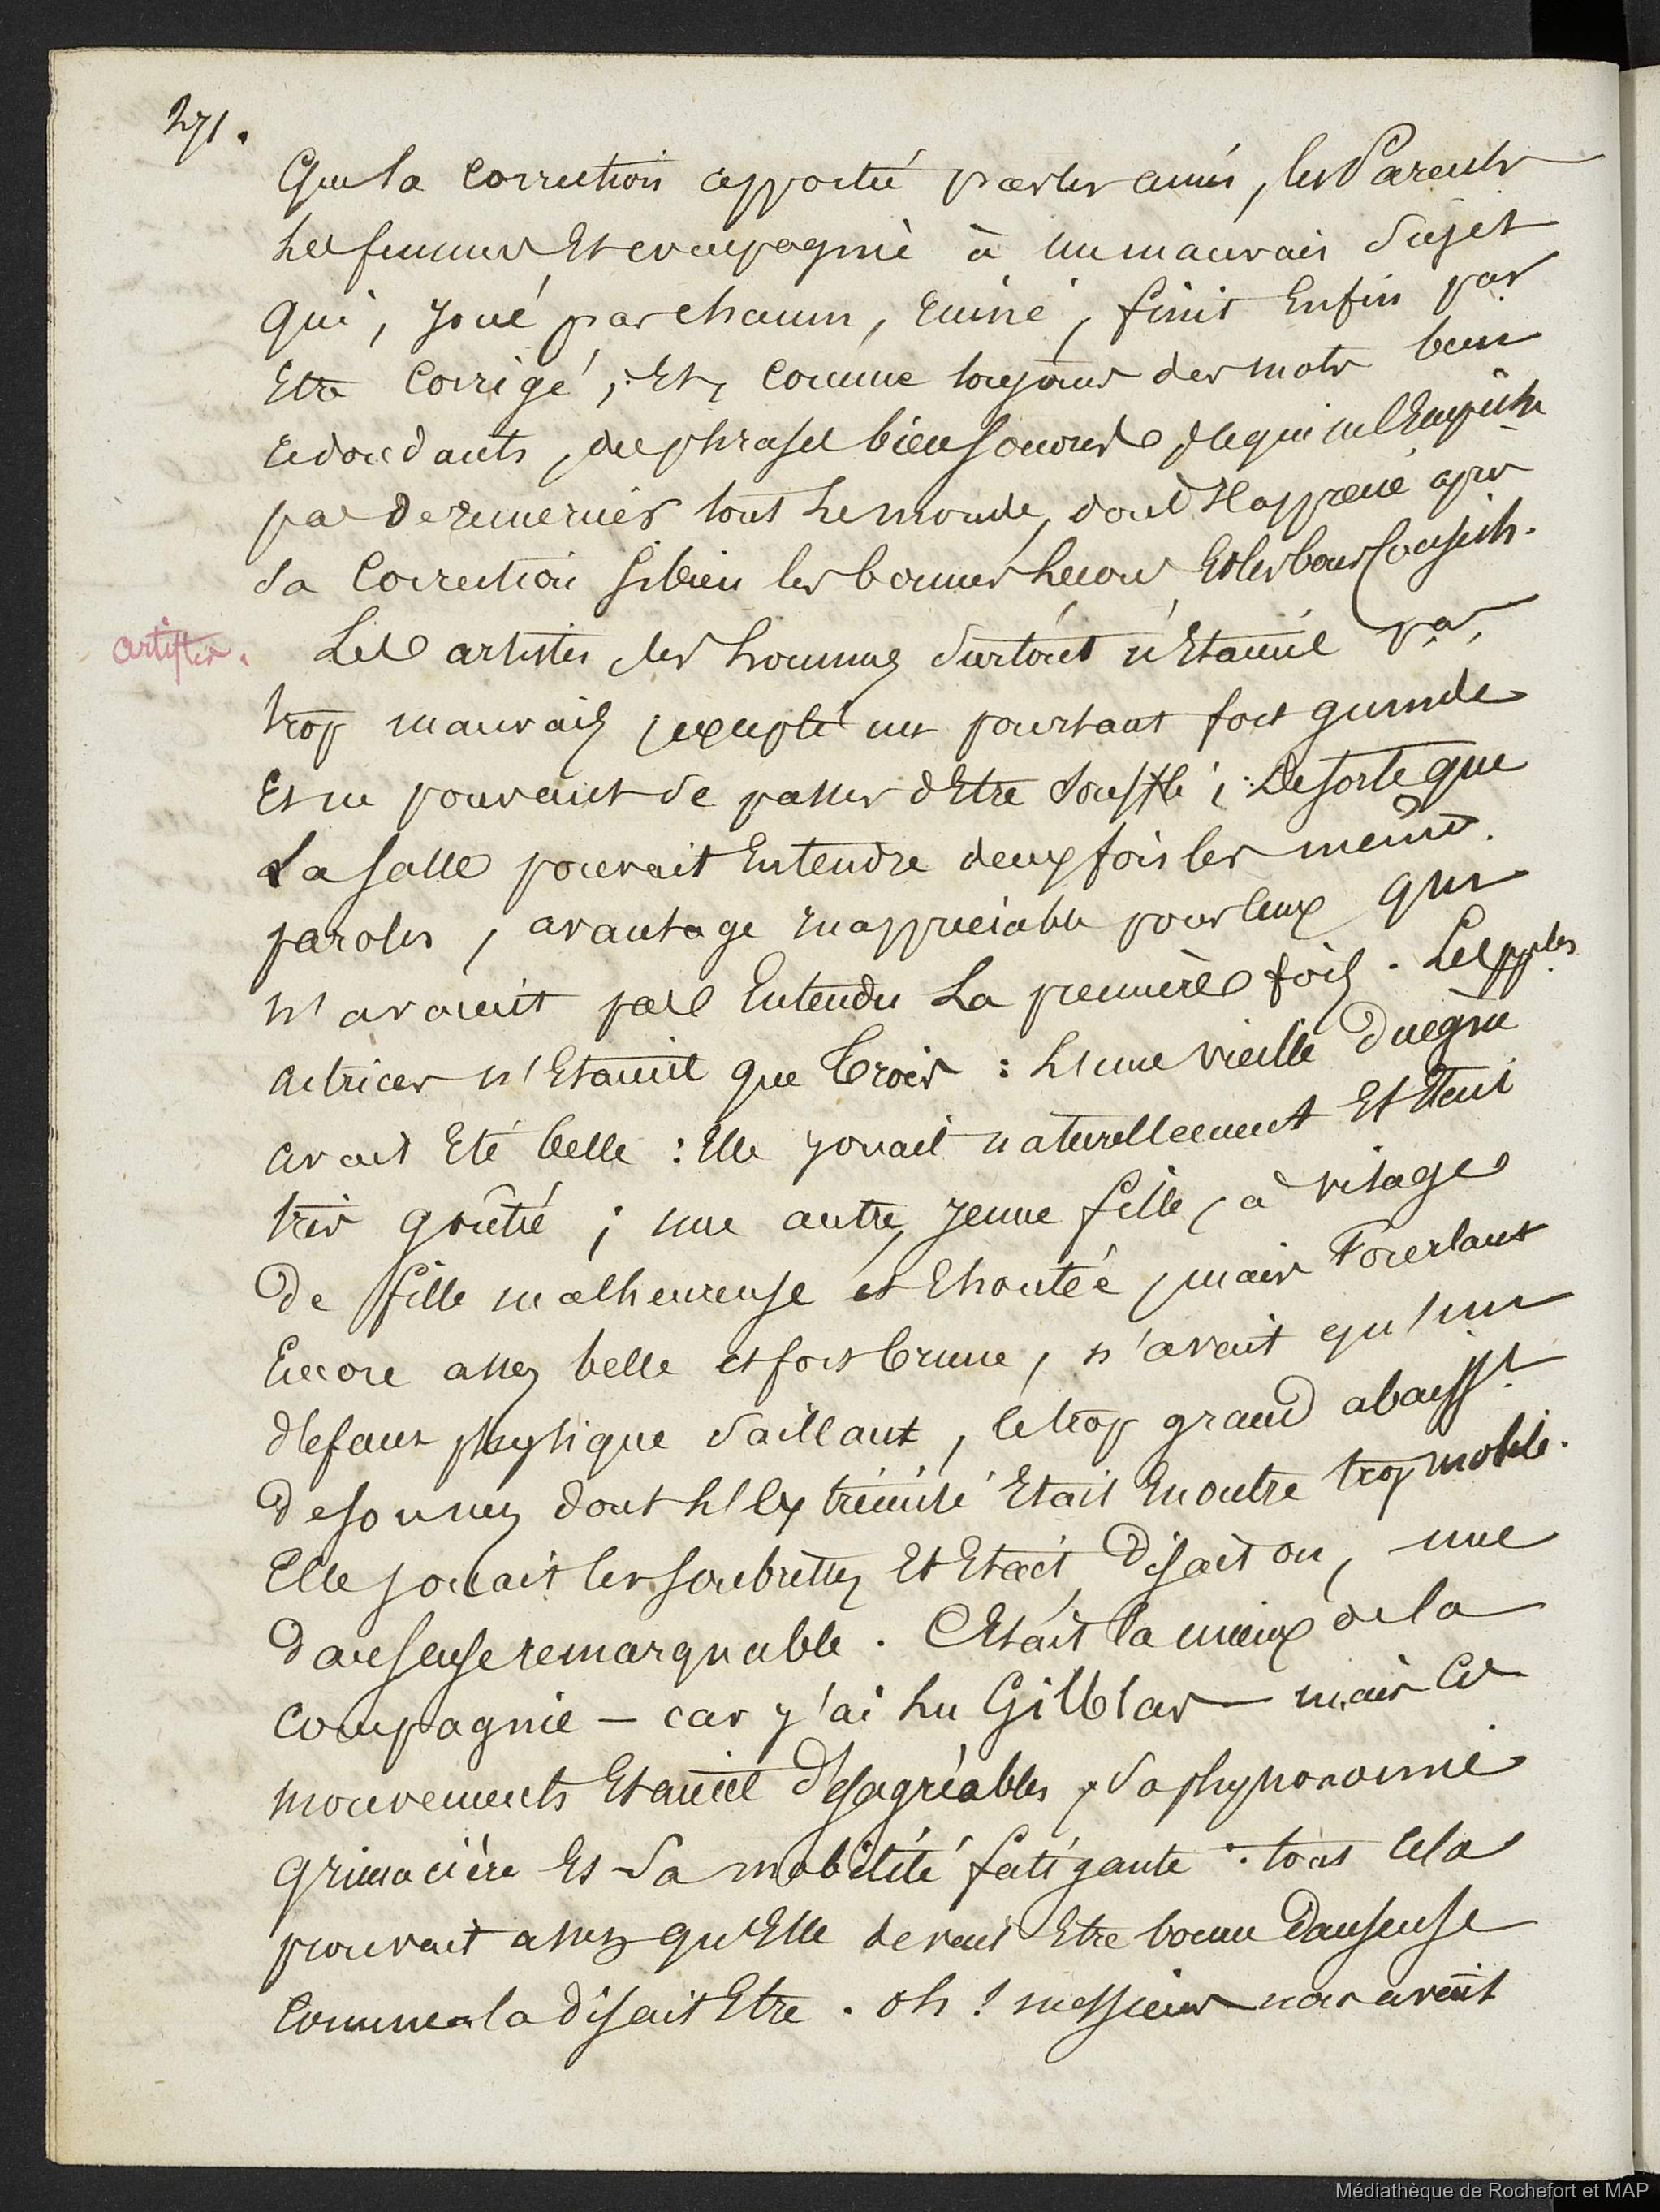 271.
Que la Correction apporté par les amis, les Parents
les femmes Et compagnie à un mauvais Sujet
qui, joué par chacun, ruiné, finit Enfin par
Etre Corrigé ; Et, Comme toujours des mots bien
redondants, des phrases bien sonores, ce qui ne l'Empêche
pas de remercier tout le monde, dont Il apprecie après
Sa Correction si bien les bonnes Lecons Et les bons Conseils.
artistes.
Les artistes, les hommes Surtout n'Etaient pas
trop mauvais, excepté un pourtant fort
Et ne pouvant Se passer d'Etre Soufflé ; De sorte que
La salle pouvait Entendre deux fois les mêmes
paroles, avantage Inappreciable pour ceux qui
n'avaient pas Entendu La première fois. Les pples
actrices n'Etaient que Trois : L'une vieille Duegne
avait Eté belle : Elle jouait naturellement Et Etait
très goûtée ; une autre, jeune fille, à visage
De fille malheureuse et Ehontée, mais Pourtant
Encore assez belle et fort brune, n'avait qu'un
defaut physique Saillant, le trop grand abaisst
De son nez dont L'Extrémité Etait En outre trop mobile.
Elle jouait les soubrettes Et Etait, Disait on, une
Danseuse remarquable. C'Etait la mieux de la
Compagnie – car j'ai Lu Gilblas – mais Ces
mouvements Etaient Desagréables, Sa physionomie
grimacière Et Sa mobilité fatigante : tout Cela
prouvait assez qu'Elle devait Etre bonne Danseuse
Comme on la Disait Etre. Oh ! messieurs nous avait